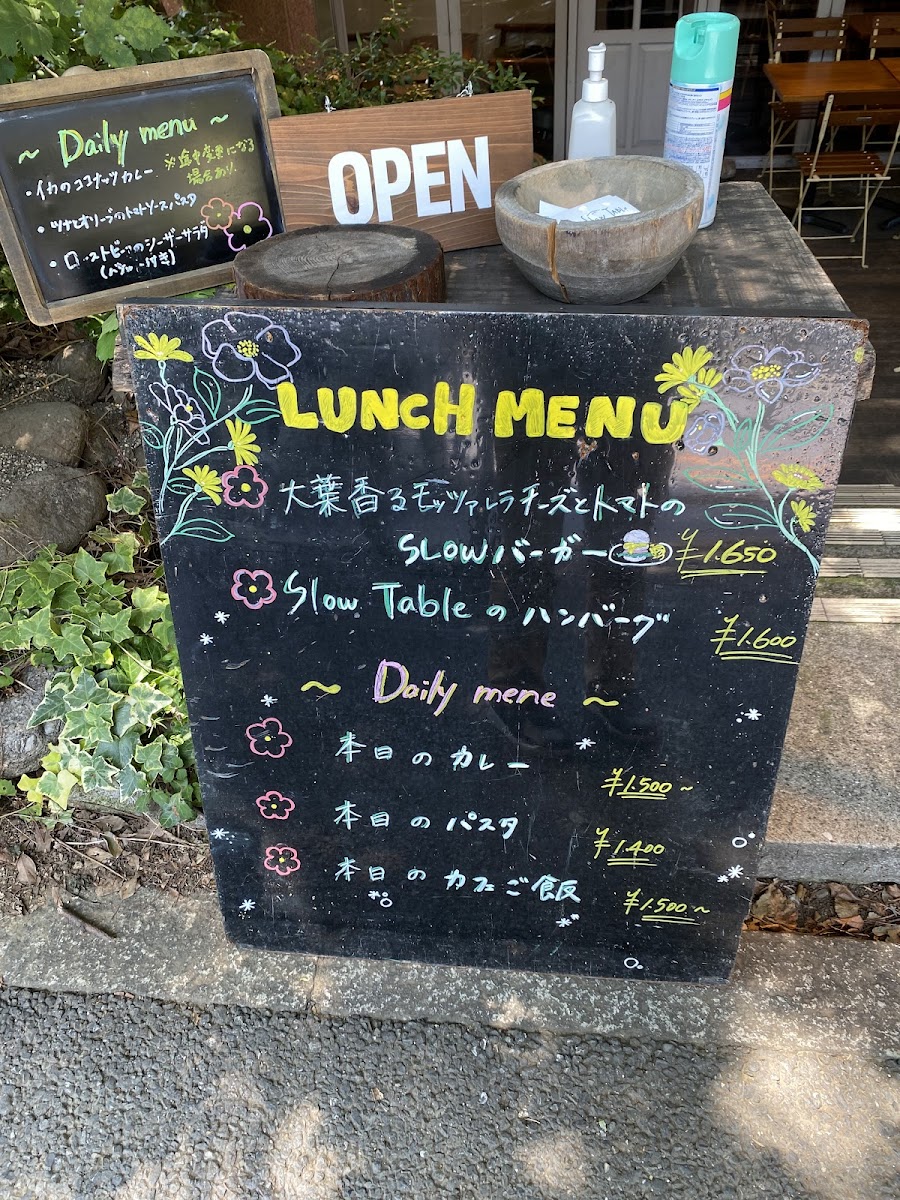 ~ Daily menu ~
・イカのココナッツカレー
※途中変更になる
場合あり.
・ツナとオリーブのトマトソースパスタ
・ローストビーフのシーザーサラダ
(バゲット付き)
OPEN
LUNCH MENU
大葉香るモッツァレラチーズとトマトの
SLOWバーガー ¥1.650
Slow Table の ハンバーグ
¥1.600
~ Daily mene ~
本日のカレー
¥1.500~
本日のパスタ
¥1.400
本日のカフェご飯
¥1.500~